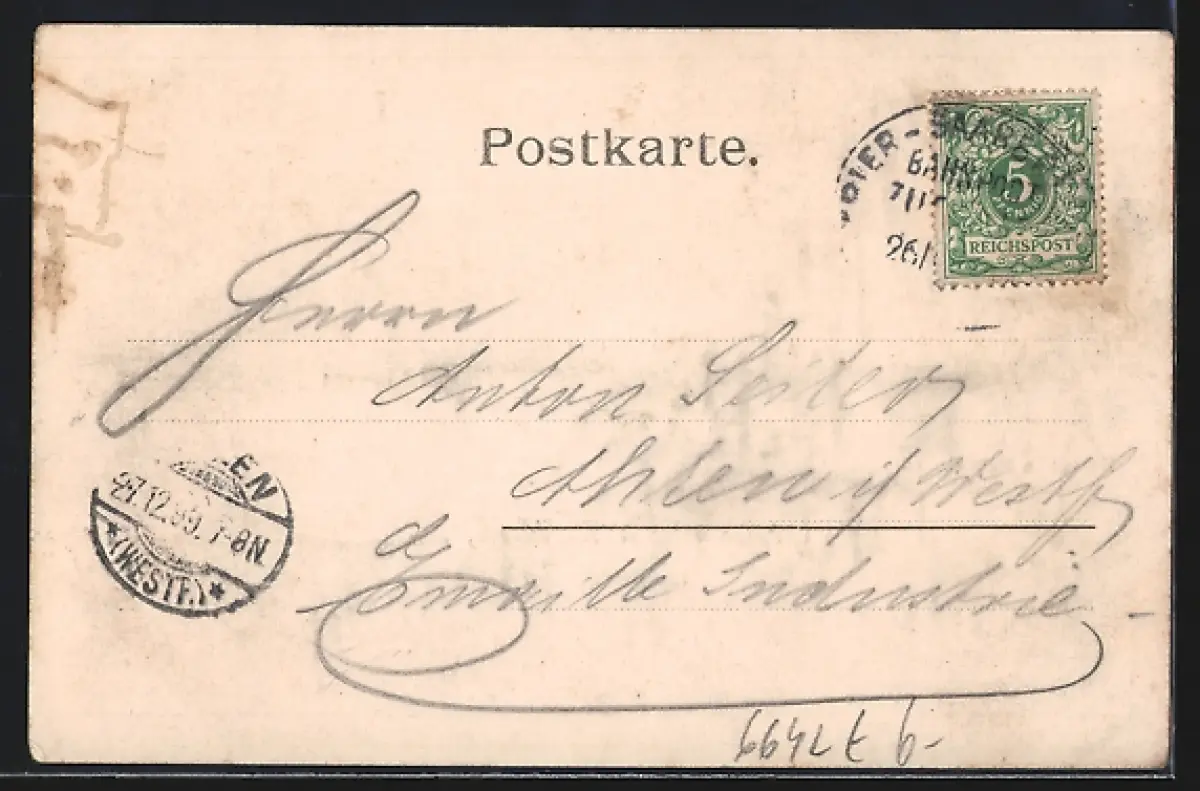 Postkarte.
BAHN
26/
5
REICHSPOST
Herrn
Anton Seiler
Ahlen i/ Westf
Emaille Industrie
27.12.99. 7-8N.
*(WESTF.)*
6642 t 6-